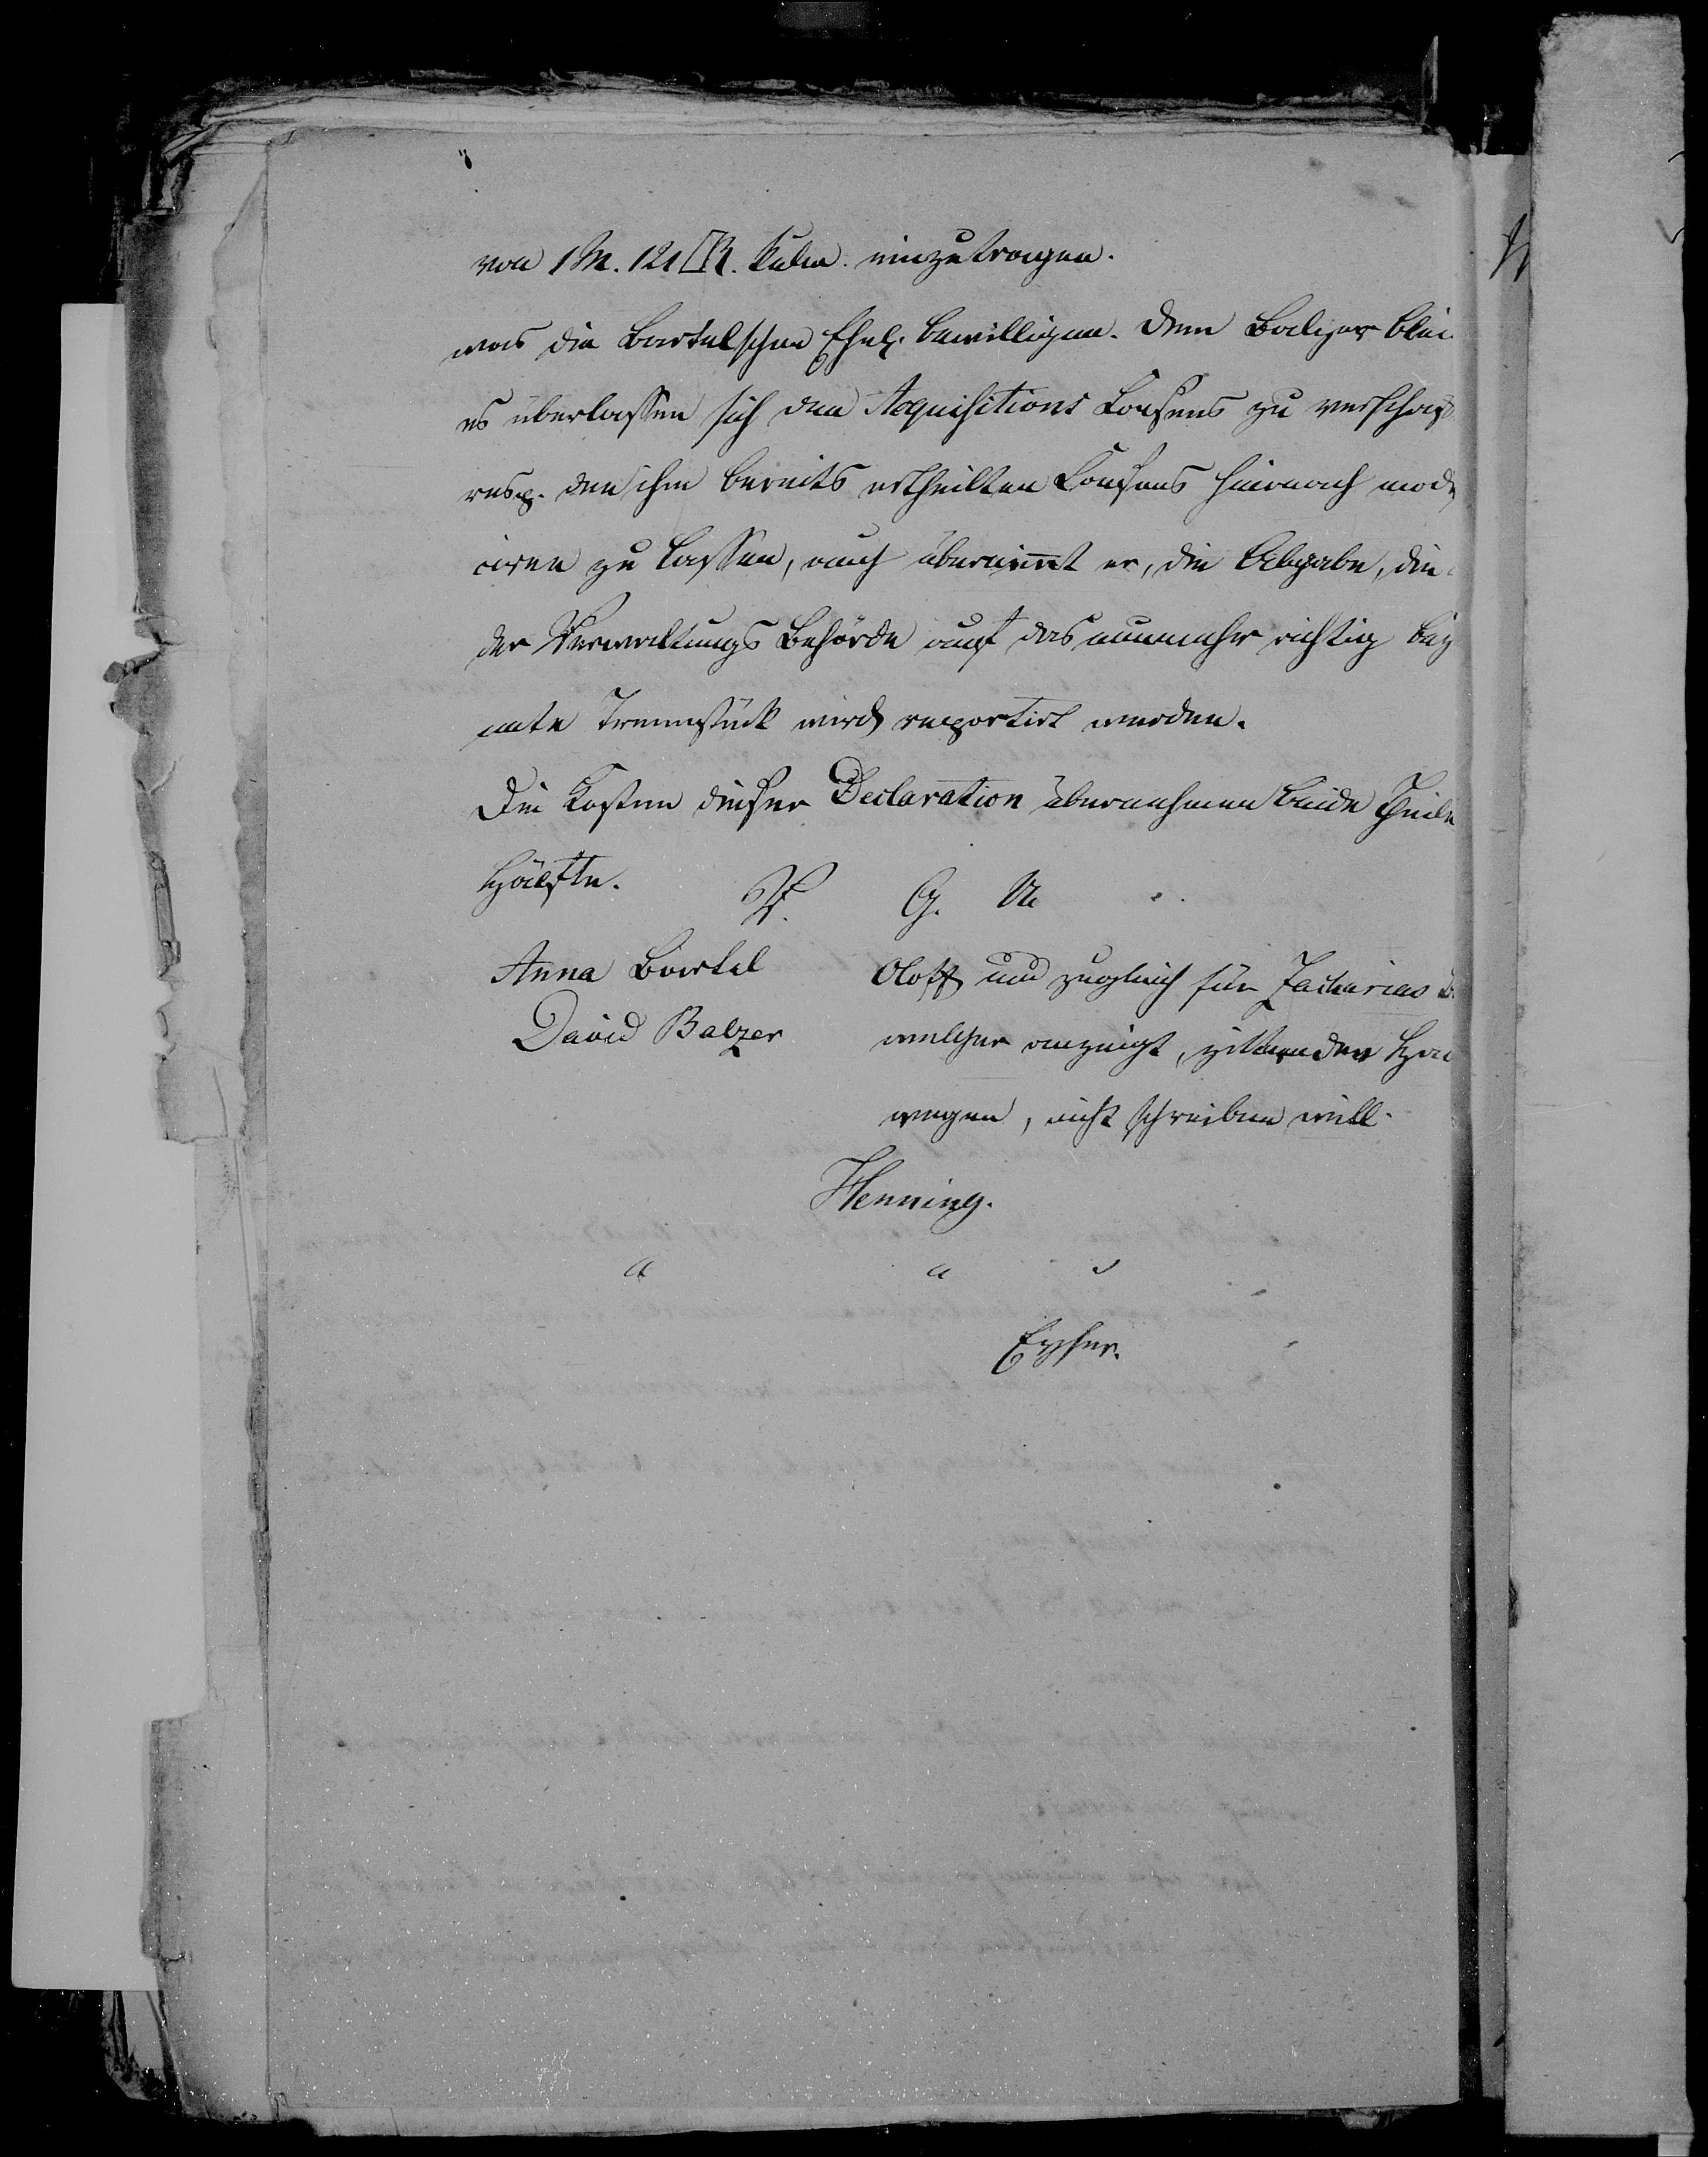 von 1 M. 121 □R. Kulm. einzutragen.
was die Bartelschen Ehel. bewilligen. Dem Balzer blei
es überlassen sich den Acquisitions Consens zu verschaf
resp. den ihm bereits ertheilten Consens hiernach modi
ciren zu lassen, auch übernim̅t er, die Abgabe, die
der Verwaltungs Behörde auf das nunmehr richtig be
nete Trennstück wird repartirt werden.
Die Kosten dieser Declaration übernehmen beide Theile
Hälfte.
V. G. U.
Anna Bartel
David Balzer
Oloff und zugleich für Zacharias B
welcher anzeigt, zitternder Han
wegen, nicht schreiben will.
Henning.
a u s